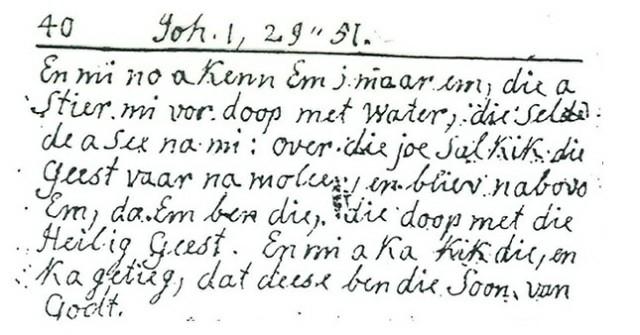 40 Joh. 1, 29" 51.
En mi no a Kenn Em; maar em, die a
Stier mi vor doop met Water, die Selde
de a See na mi: over die joe Sal Kik die
Geest vaar na molee, en bliev nabovo
Em, da Em ben die, die doop met die
Heilig Geest. En mi a Ka Kik die, en
Ka getieg, dat deese ben die Soon van
Godt.